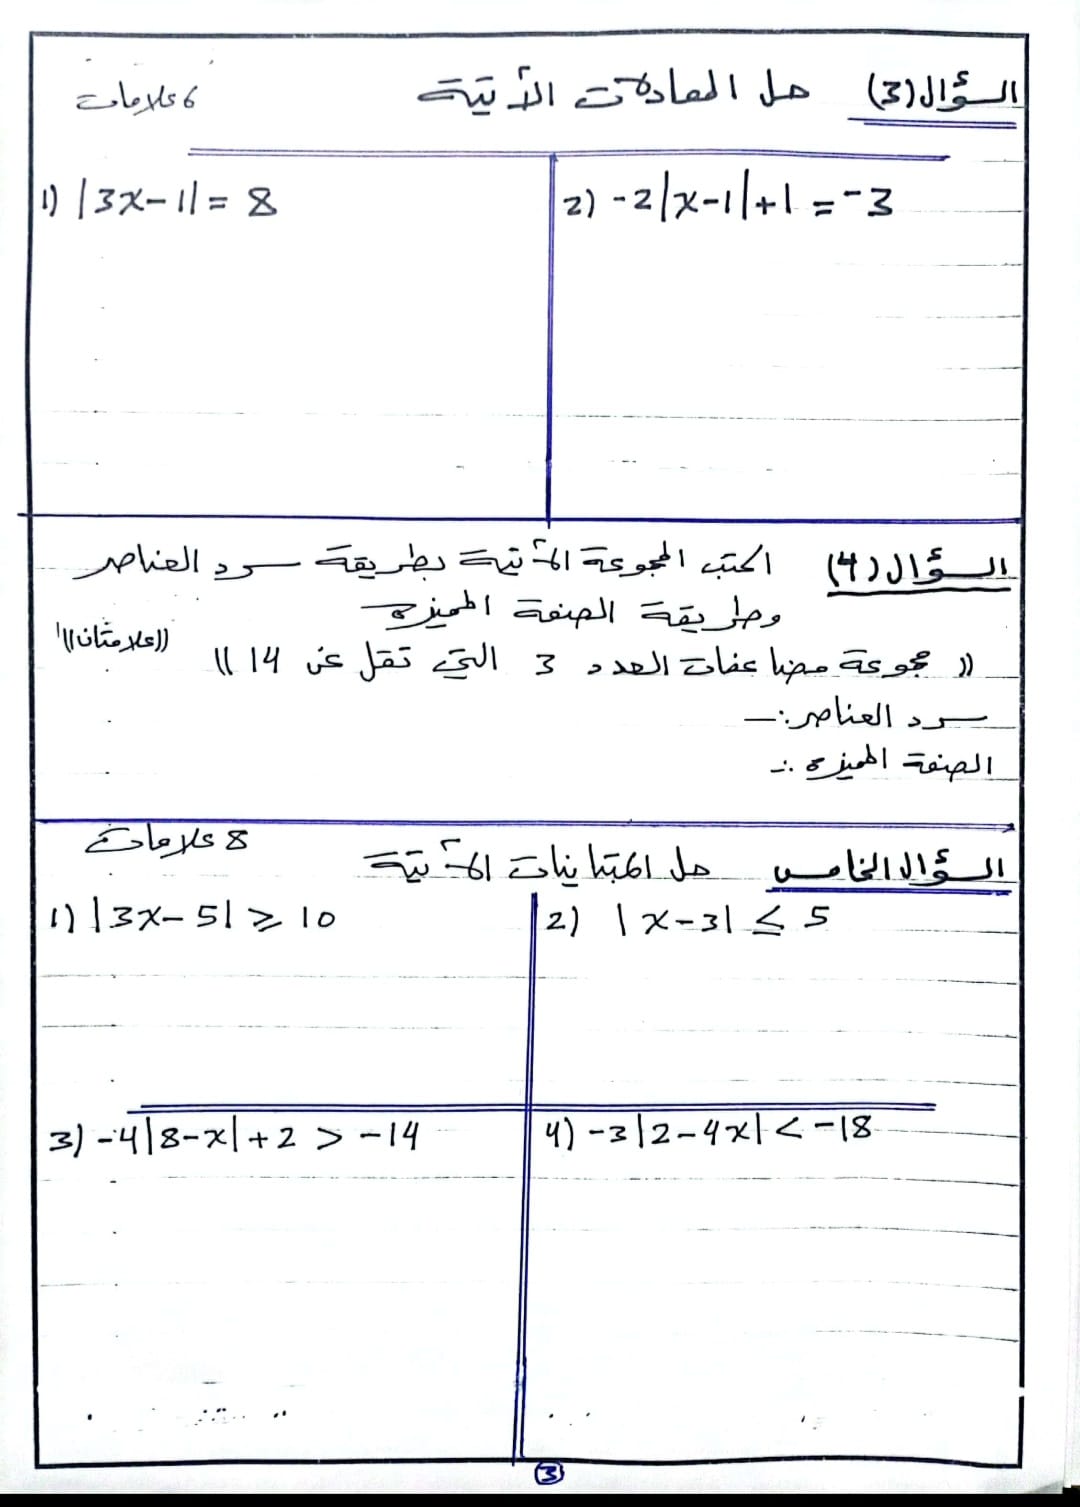 السؤال (3) حل المعادلات الآتية 6 علامات
1) |3x-1| = 8
2) -2|x-1|+1 = -3
السؤال (4) اكتب المجموعة الآتية بطريقة سرد العناصر
وطريقة الصفة المميزة ((علامتان))
(( مجموعة مضاعفات العدد 3 التي تقل عن 14 ))
سرد العناصر :-
الصفة المميزة :-
8 علامات
السؤال الخامس حل المتباينات الآتية
1) |3x-5| ≥ 10
2) |x-3| ≤ 5
3) -4|8-x|+2 > -14
4) -3|2-4x| < -18
3